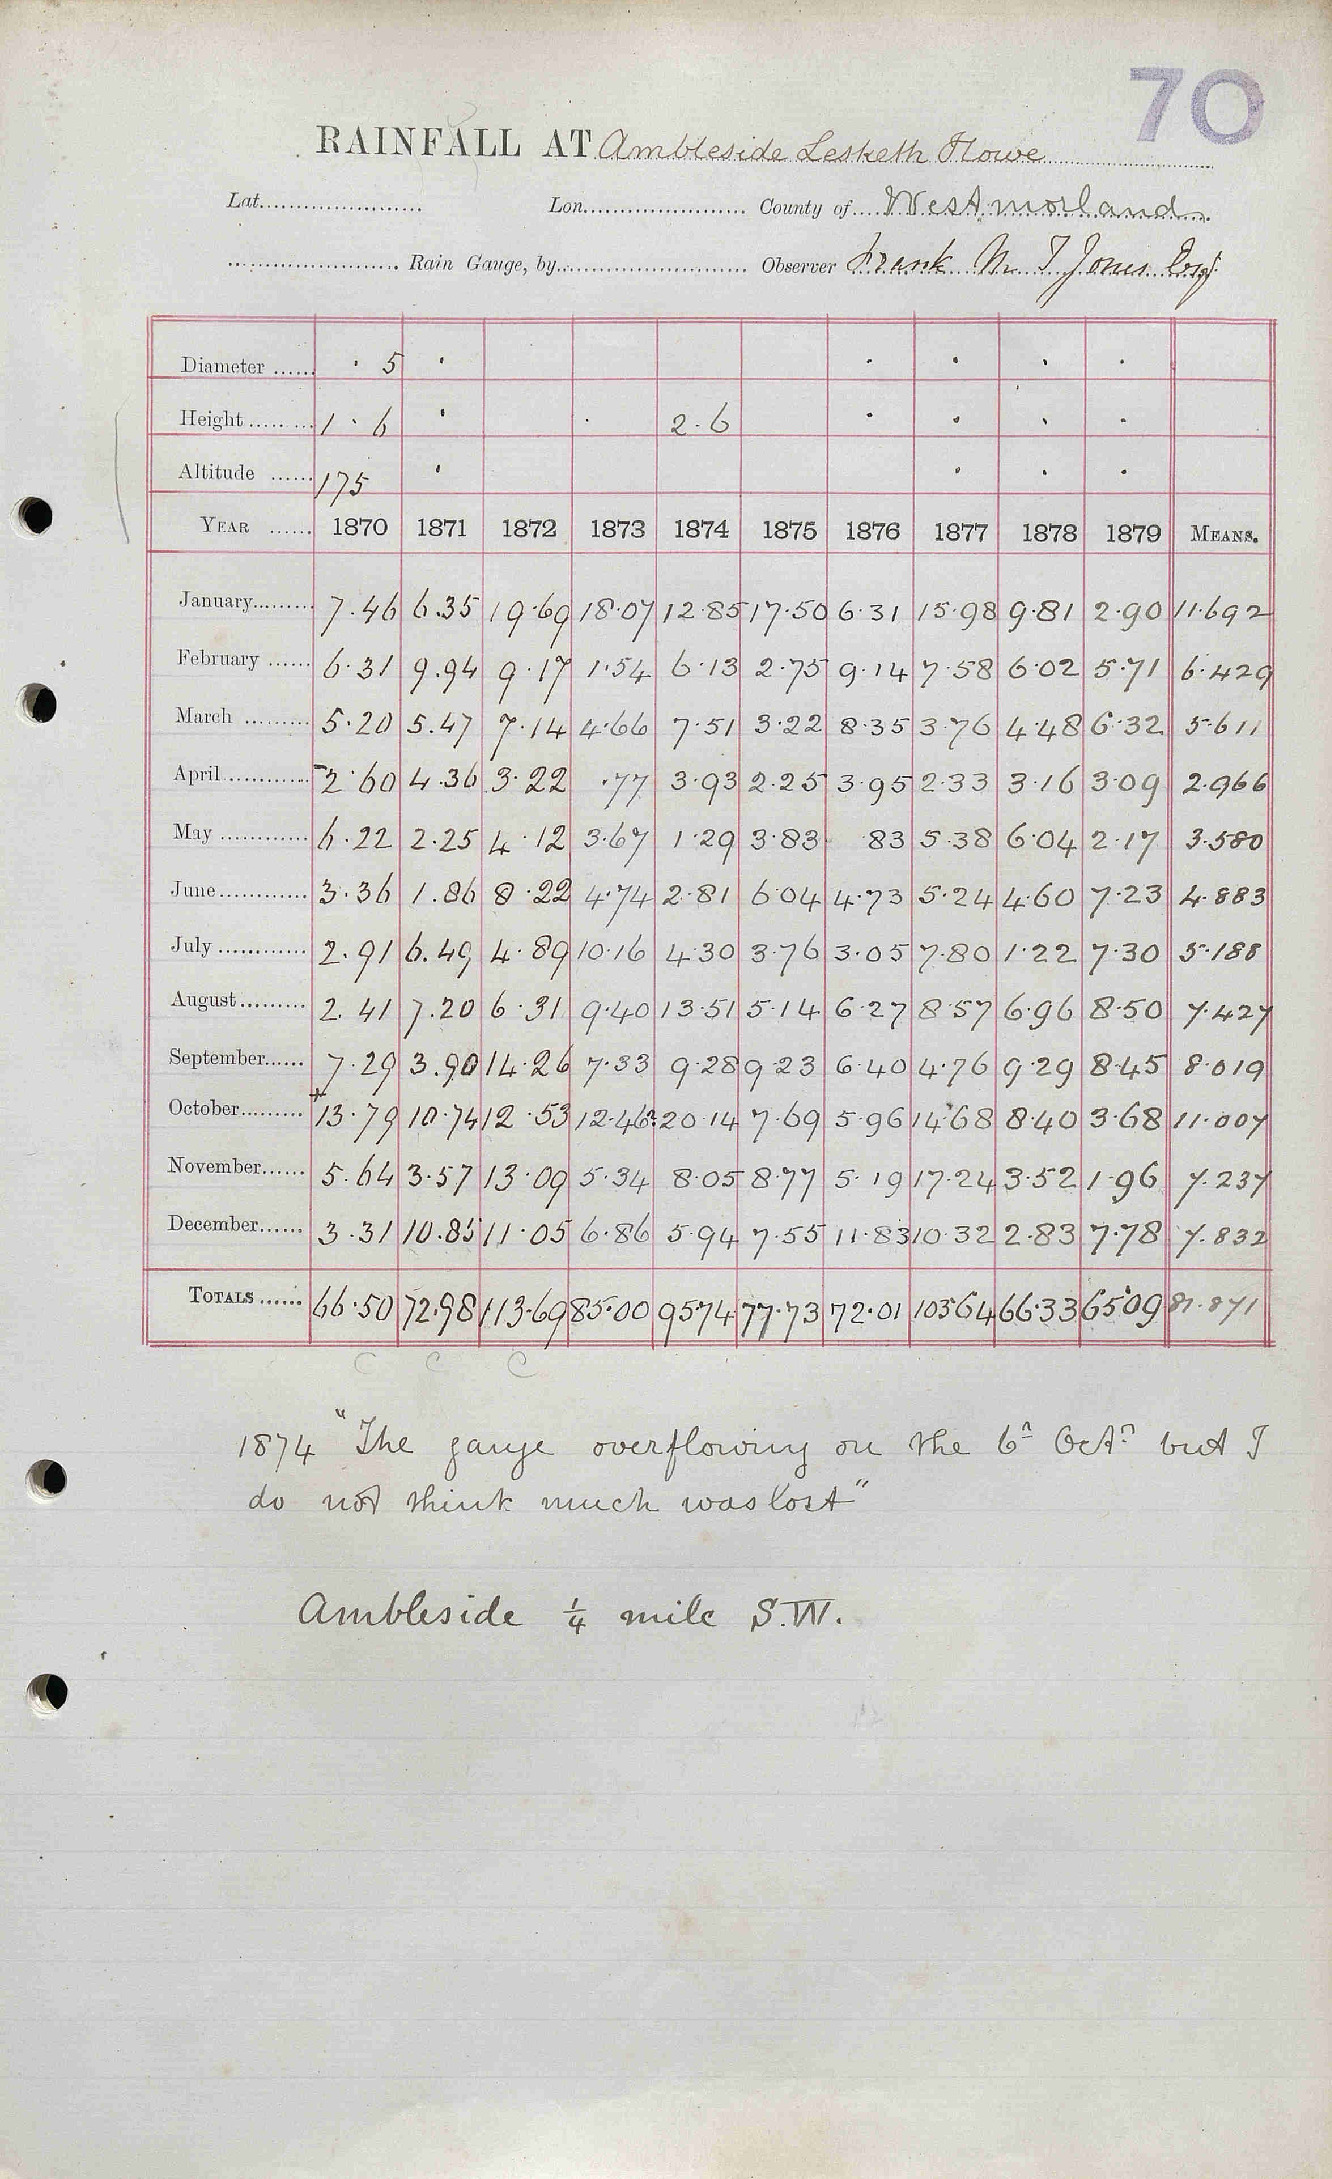 70
RAINFALL AT Ambleside Lesketh Howe
Lat. Lon. County of Westmorland
Rain Gauge, by Observer Frank M T Jones Esq
Diameter 5
Height 1 . 6 2.6
Altitude 175
YEAR 1870 1871 1872 1873 1874 1875 1876 1877 1878 1879 MEANS.
January 7.46 6.35 19.69 18.07 12.85 17.50 6.31 15.98 9.81 2.90 11.692
February 6.31 9.94 9.17 1.54 6.13 2.75 9.14 7.58 6.02 5.71 6.429
March 5.20 5.47 7.14 4.66 7.51 3.22 8.35 3.76 4.48 6.32 5.611
April 2.60 4.36 3.22 .77 3.93 2.25 3.95 2.33 3.16 3.09 2.966
May 6.22 2.25 4.12 3.67 1.29 3.83 83 5.38 6.04 2.17 3.580
June 3.36 1.86 8.22 4.74 2.81 6 04 4.73 5.24 4.60 7.23 4.883
July 2.91 6.49 4.89 10.16 4.30 3.76 3.05 7.80 1.22 7.30 5.188
August 2.41 7.20 6.31 9.40 13.51 5.14 6.27 8.57 6.96 8.50 7.427
September 7.29 3.90 14.26 7.33 9.28 9.23 6.40 4.76 9.29 8.45 8.019
October 13.79 10.74 12.53 12.46 20.14 7.69 5.96 14.68 8.40 3.68 11.007
November 5.64 3.57 13.09 5.34 8.05 8.77 5.19 17.24 3.52 1.96 7.237
December 3.31 10.85 11.05 6.86 5.94 7.55 11.83 10.32 2.83 7.78 7.832
TOTALS 66.50 72.98 113.69 85.00 95.74 77.73 72.01 103.64 66.33 65.09 81.871
C C C
1874 "The gauge overflowing on the 6th Octr but I
do not think much was lost"
Ambleside ¼ mile S.W.